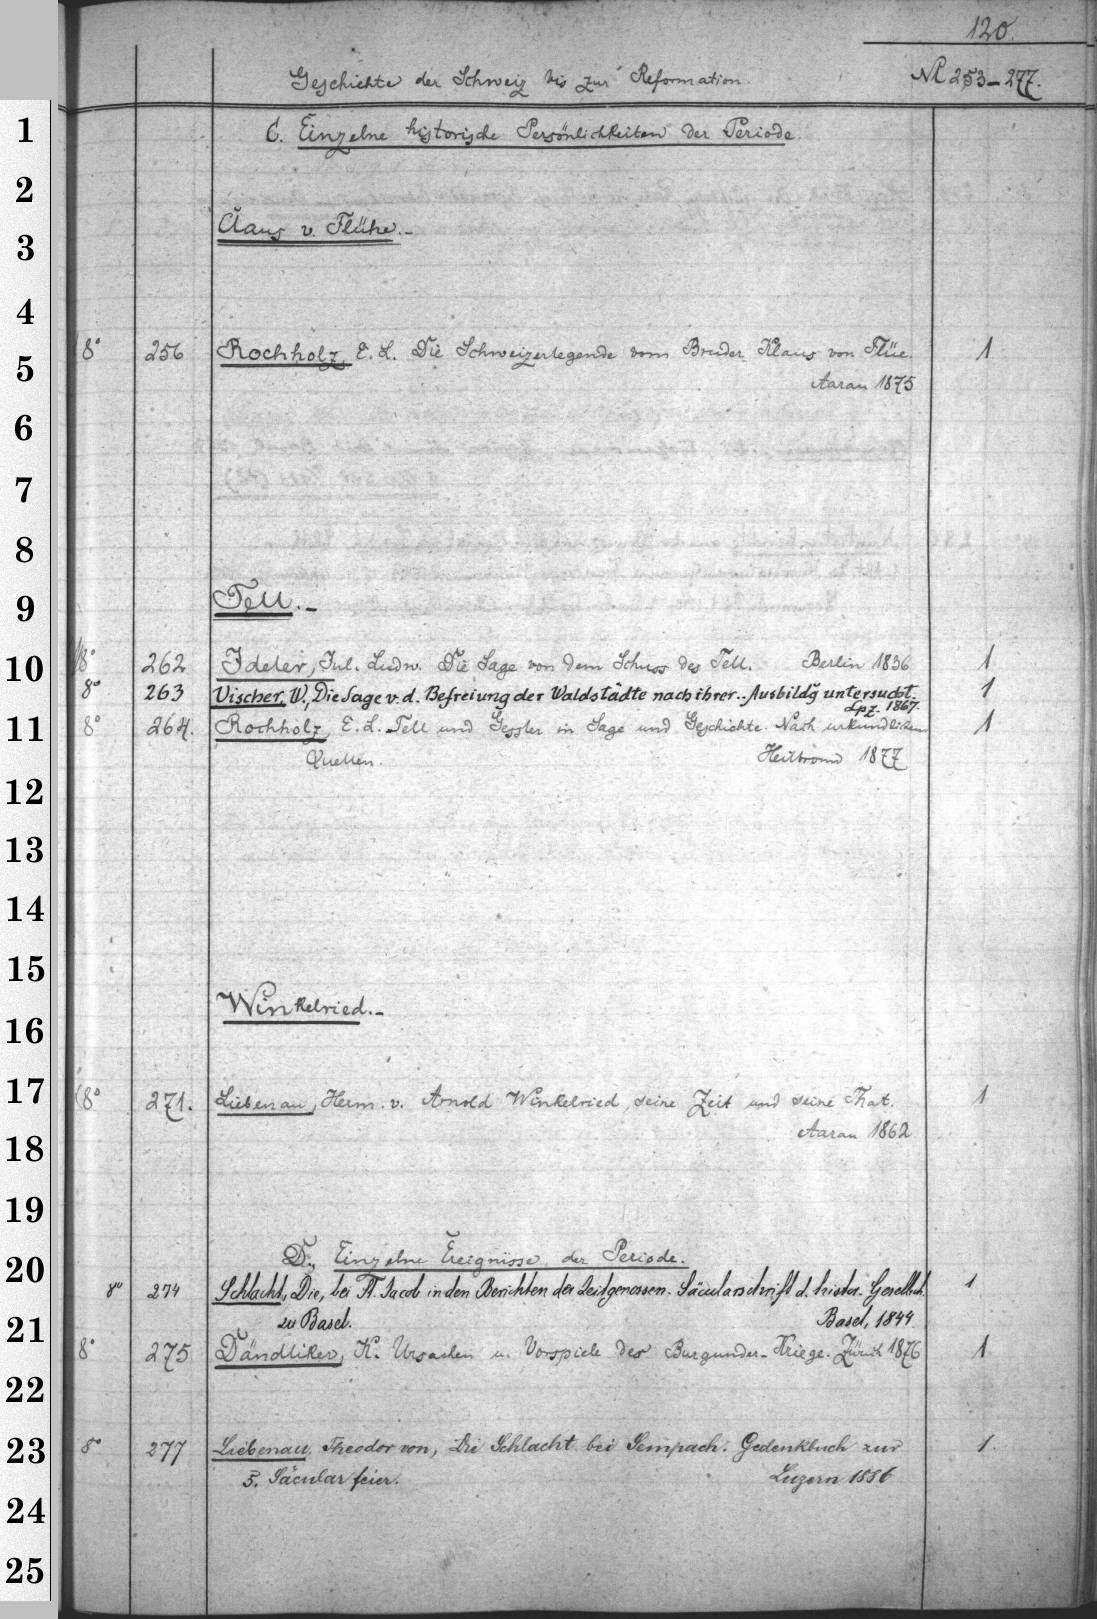 120.
Geschichte der Schweiz bis zur Reformation. № 253-277.
1 C. Einzelne historische Persönlichkeiten der Periode.
2
Claus v. Flühe.-
3
4
8° 256 Rochholz, E. L. Die Schweizerlegende vom Bruder Klaus von Flüe. 1
5
Aarau 1875
6
7
8
9 Tell.-
10 8° 262 Ideler, Jul. Ludw. Die Sage von dem Schuss des Tell. Berlin 1836 1
8° 263 Vischer, W., Die Sage v. d. Befreiung der Waldstädte nach ihrer.. Ausbildg untersucht. 1
Lpz. 1867.
11 8° 264. Rochholz, E. L. Tell und Gessler in Sage und Geschichte. Nach urkundlichen 1
Quellen. Heilbronn 1877
12
13
14
15
Winkelried.-
16
17 8° 271. Liebenau, Herm. v. Arnold Winkelried, seine Zeit und seine That. 1
Aarau 1862
18
19
D., Einzelne Ereignisse der Periode.
20
8° 274 Schlacht, Die, bei St. Jacob in den Berichten der Zeitgenossen. Säcularschrift d. histor. Gesellsch. 1
zu Basel. Basel, 1844.
21
8° 275 Dändliker, K. Ursachen u. Vorspiele des Burgunder-Kriege. Zürich 1876 1
22
23 8° 277 Liebenau, Theodor von, Die Schlacht bei Sempach. Gedenkbuch zur 1.
5. Säcularfeier. Luzern 1886
24
25